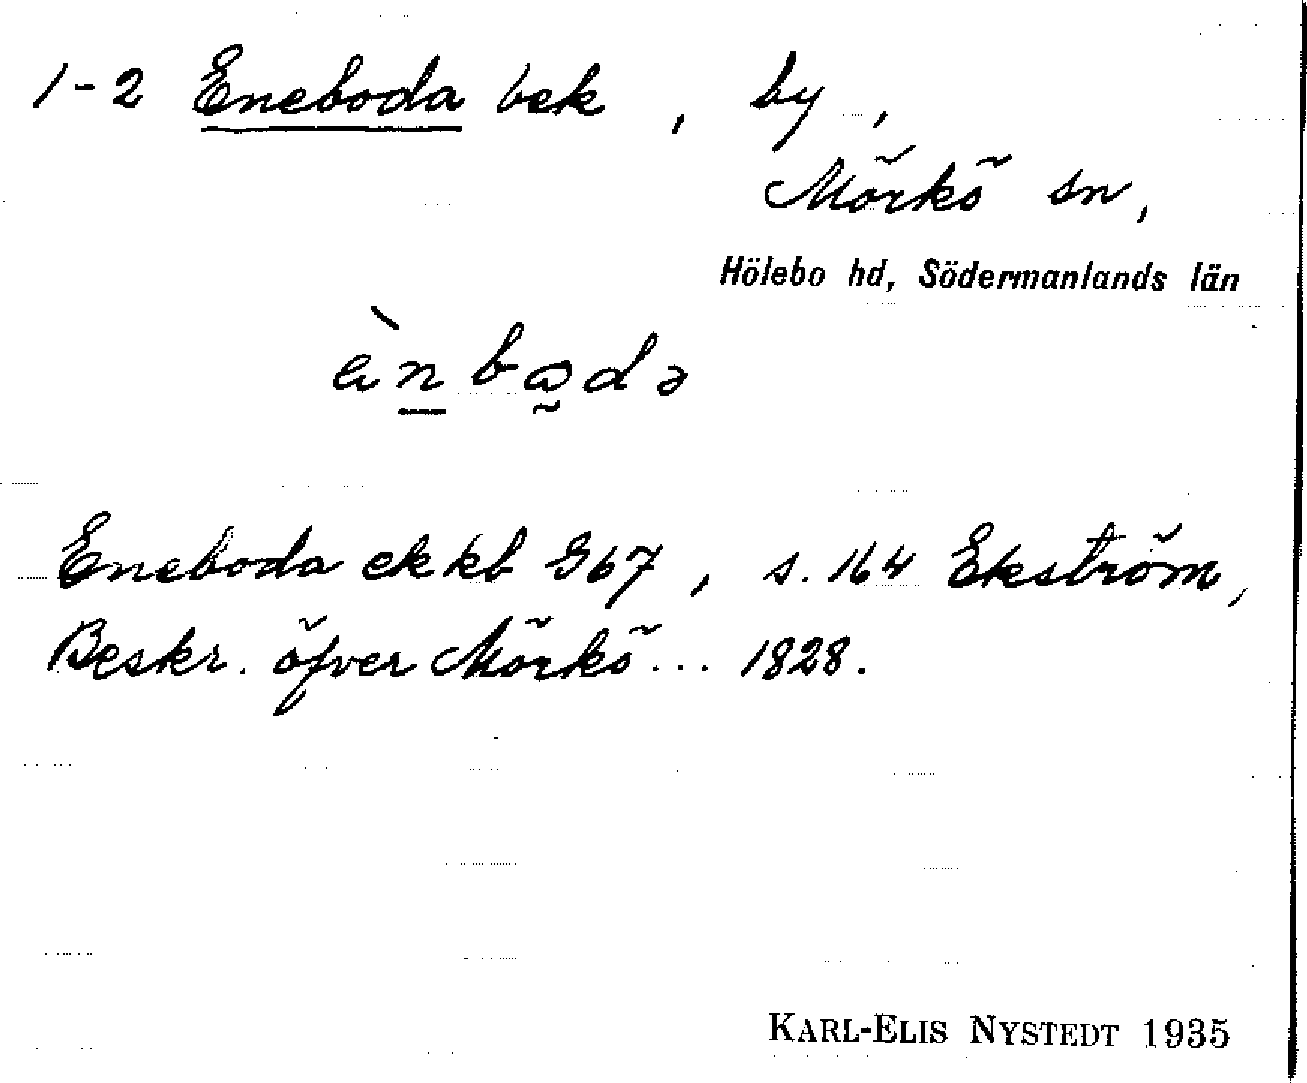 1-2 Eneboda bek, by,
Mörkö sn,
Hölebo hd, Södermanlands län
Eneboda ekkb G67, s. 164 Ekström,
Beskr. öfver Mörkö... 1828.
KARL-ELIS NYSTEDT 1935